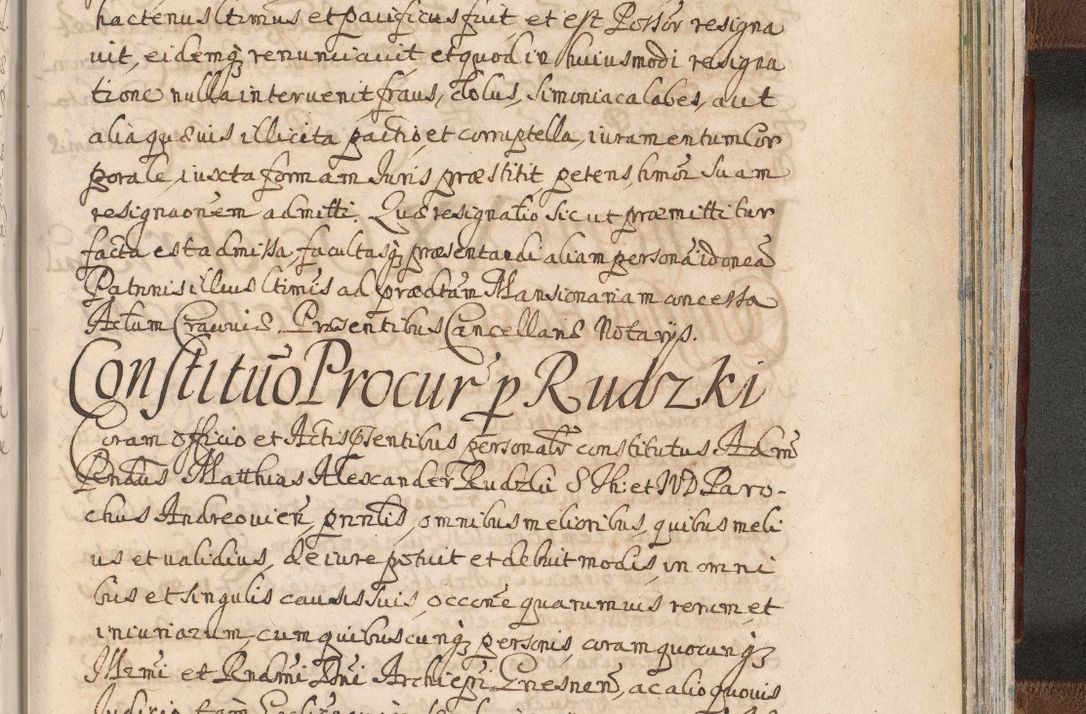 hactenus ltimus et pacificus fuit et est Possor resigna
uit, eidemq renunciauit et quod in huiusmodi resigna
tione nulla interuenit fraus, dolus, Simoniaca labes, aut
alia quæuis illicita pactio et corruptella, iuramentum Cor
porale, iuxta formam Juris præstitit petens hmoi suam
resignaonem admitti. Quæ resignatio sicut præmittitur
facta est admissa, facultasq præsentandi aliam personã idoneã
Patronis illius ltimis ad prædtam Mansionariam concessa
Actum Cracouiæ. Præsentibus Cancellariæ Notarijs.
Constitutõ Procur p Rudzki
Coram officio et Actis psentibus personalr constitutus Adm
Rendus Matthias Alexander Rudzki S Th: et IVD Paro-
chus Andreouien, pnntis, omnibus melioribus, quibus meli
us et ualidius, de iure potuit et debuit modis, in omni
bus et singulis causis suis, occone quarumuis rerum et
iniuriarum, cum quibuscunq personis, coram quocunq
Illmi et Rndmi Dni Archiepi Gnesnen, ac alio quouis